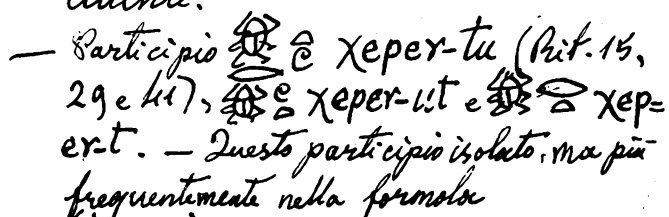 — Participio 𓆣 𓏏 χeper-tu (Rit. 15,
29 e 41), 𓆣𓂋 χeper-u.t e 𓆣𓂋𓏏 χep=
er-t. — Questo participio isolato, ma più
frequentemente nella formola